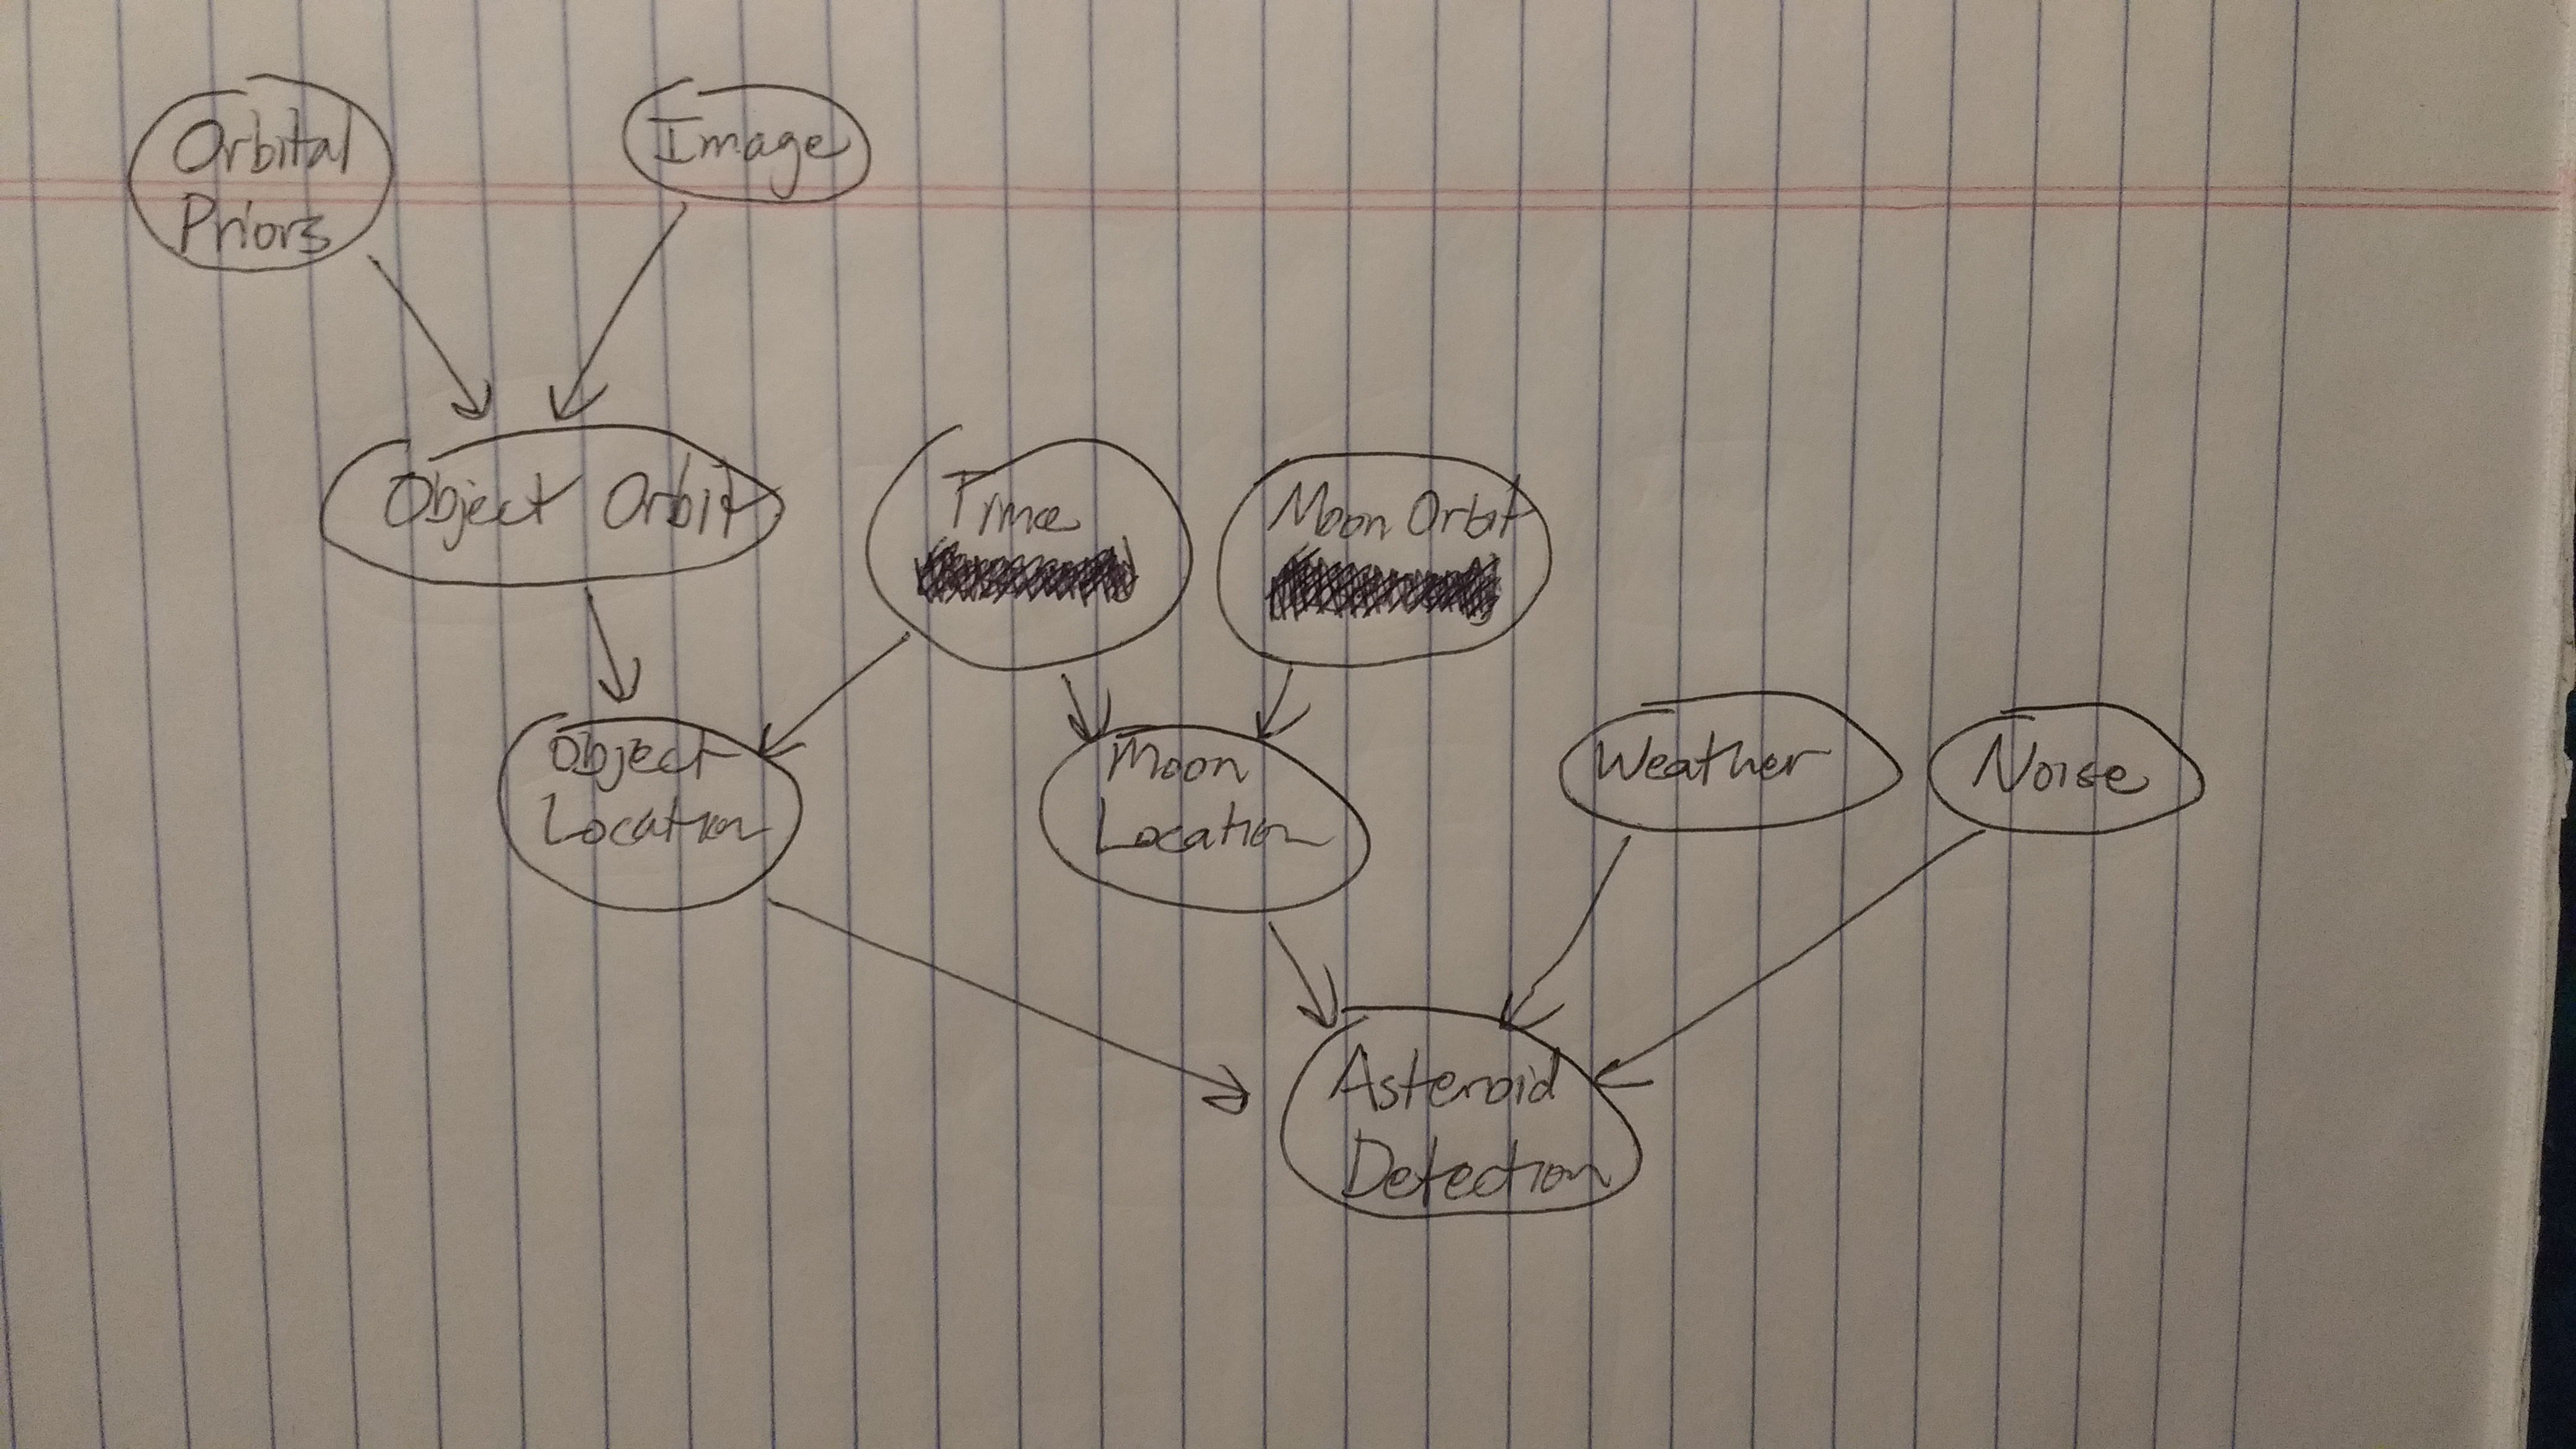 Orbital
Priors
Image
Object Orbit
Time
Moon Orbit
Object
Location
Moon
Location
Weather
Noise
Asteroid
Detection